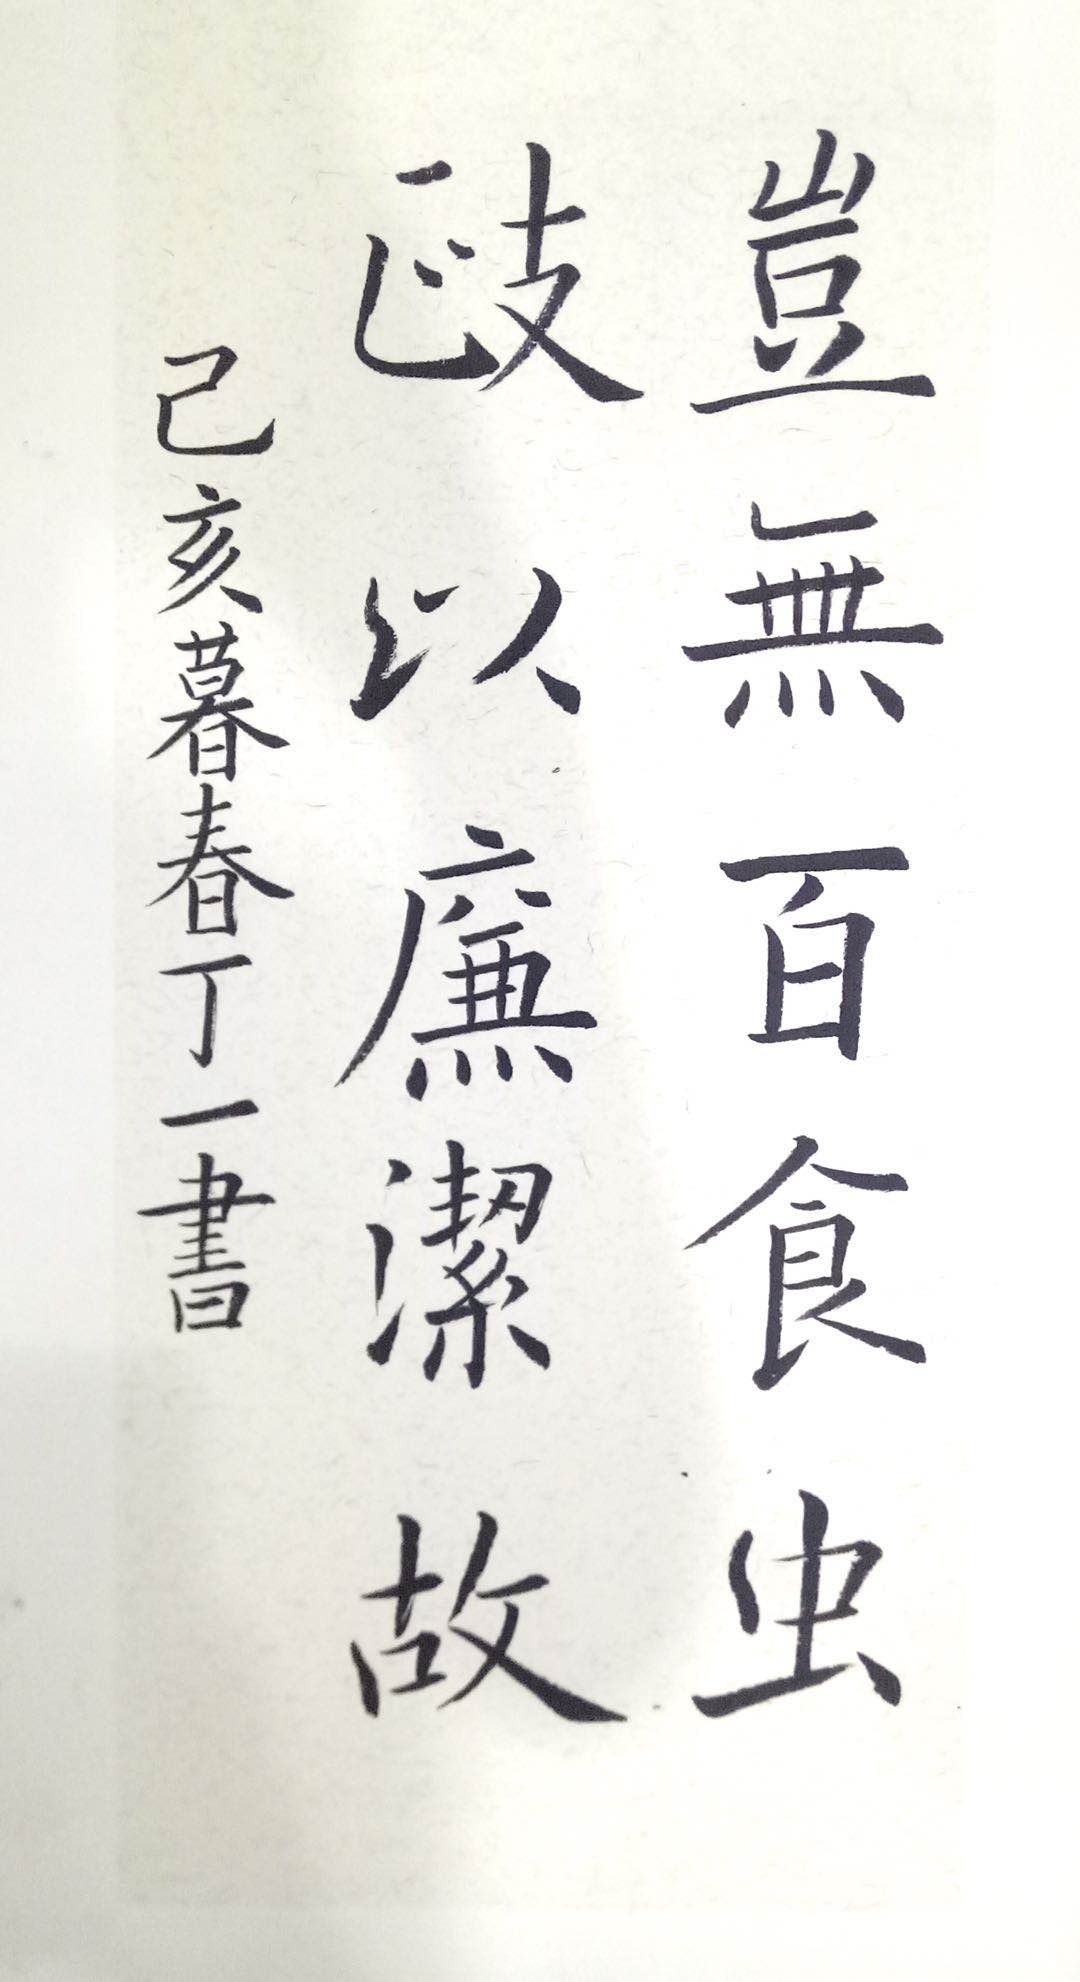 豈無百食虫
以廉潔故
己亥暮春丁一書